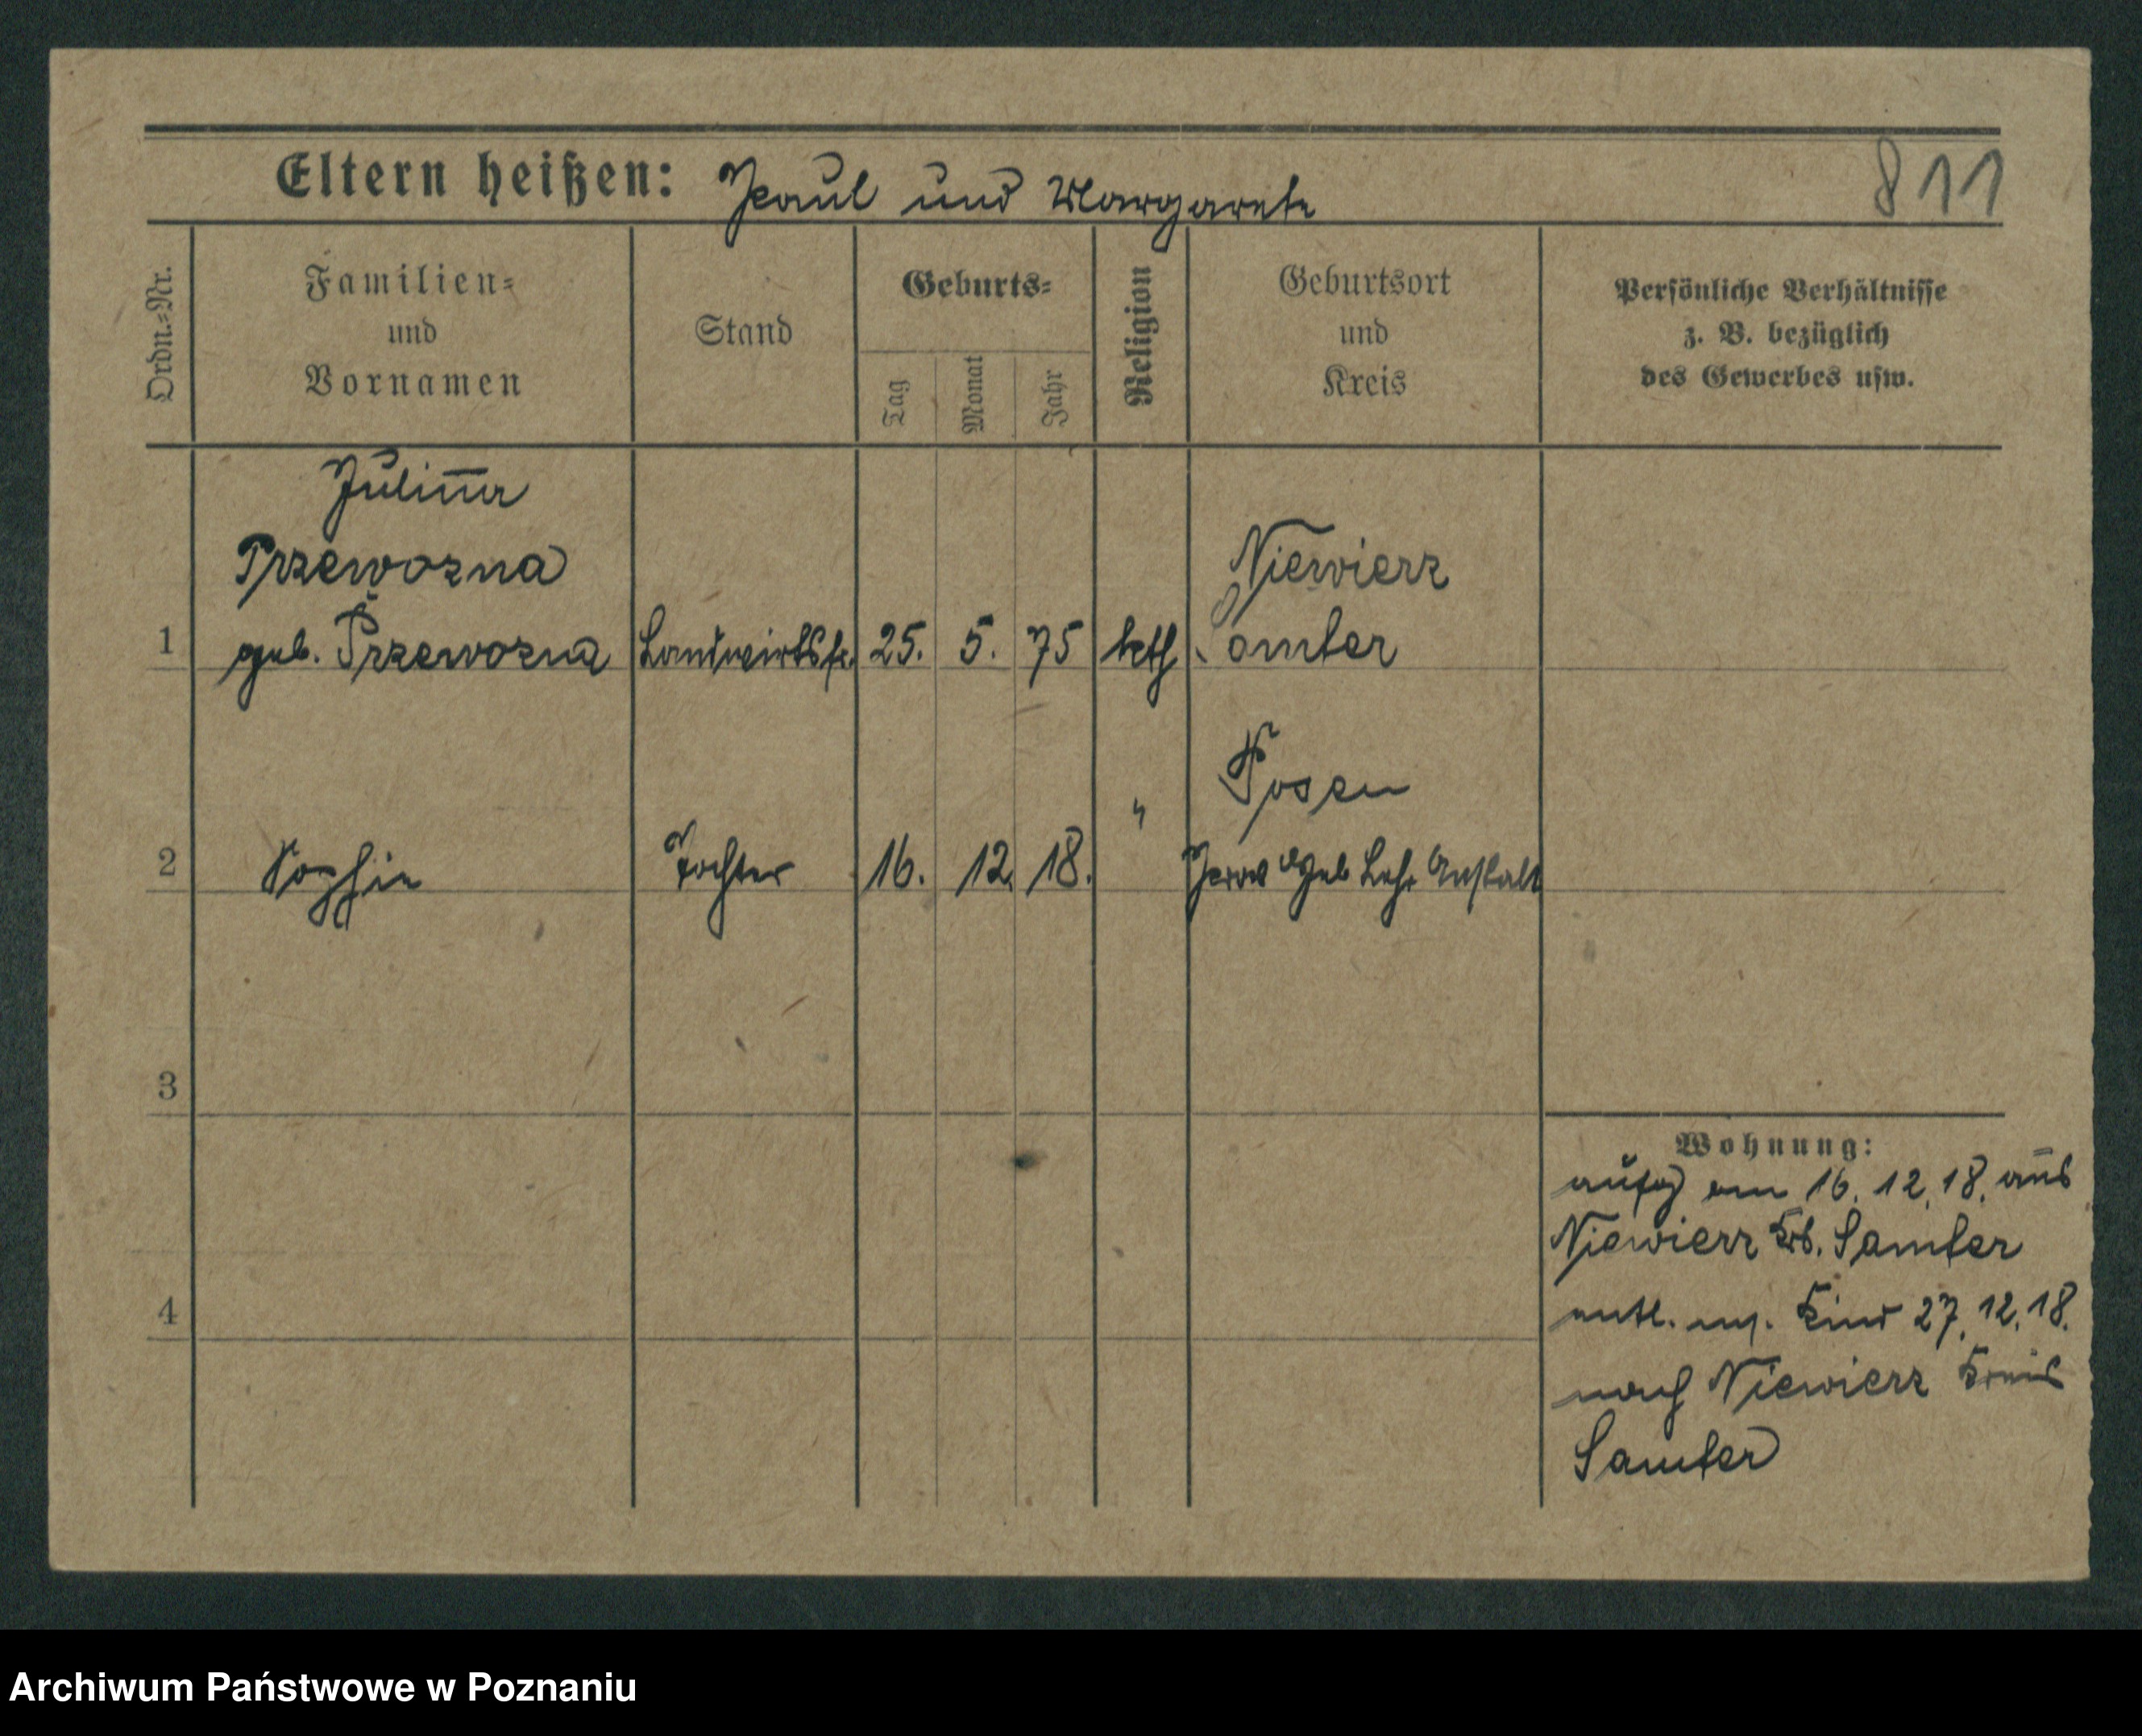 Eltern heißen: Paul und Margarete
811
Ordn.=Nr.
Familien=
und
Vornamen
Stand
Geburts=
Tag
Monat
Jahr
Religion
Geburtsort
und
Kreis
Persönliche Verhältnisse
z. B. bezüglich
des Gewerbes usw.
Przewozna
Niewierz
1 geb. Przewozna Landwirtsfr. 25. 5. 75 kath Samter
Posen
2 Sophie Tochter 16. 12. 18. " Prov Geb Lehr Anstalt
3
4
Wohnung:
am 16. 12. 18. aus
Niewierz Krs. Samter
entl. m. Kind 27. 12. 18.
nach Niewierz Kreis
Samter
Archiwum Państwowe w Poznaniu